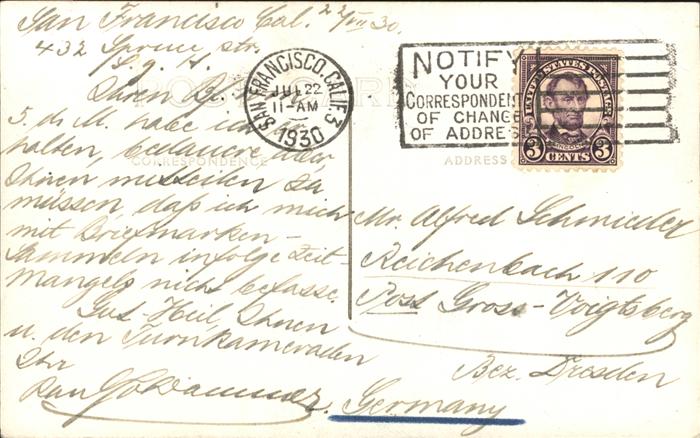 San Francisco Cal. 22/VII 30.
432 Spruce str.
POST CARD
Ihren
5. ds M. habe ich
halten, bedauere aber,
CORRESPONDENCE
Ihnen mitteilen zu
müssen, daß ich mich
mit Briefmarken-
sammeln infolge Zeit-
mangels nicht befasse.
Gut Heil, Ihnen
u. den Turnkameraden
Ihr
SAN FRANCISCO, CALIF. 3
JUL 22
11-AM
1930
NOTIFY
YOUR
CORRESPONDENT
OF CHANGE
OF ADDRES
UNITED STATES POSTAGE
LINCOLN
3 CENTS 3
ADDRESS
Mr. Alfred Schmieder
Reichenbach 110
Post Gross-Voigtsberg
Bez. Dresden
Germany